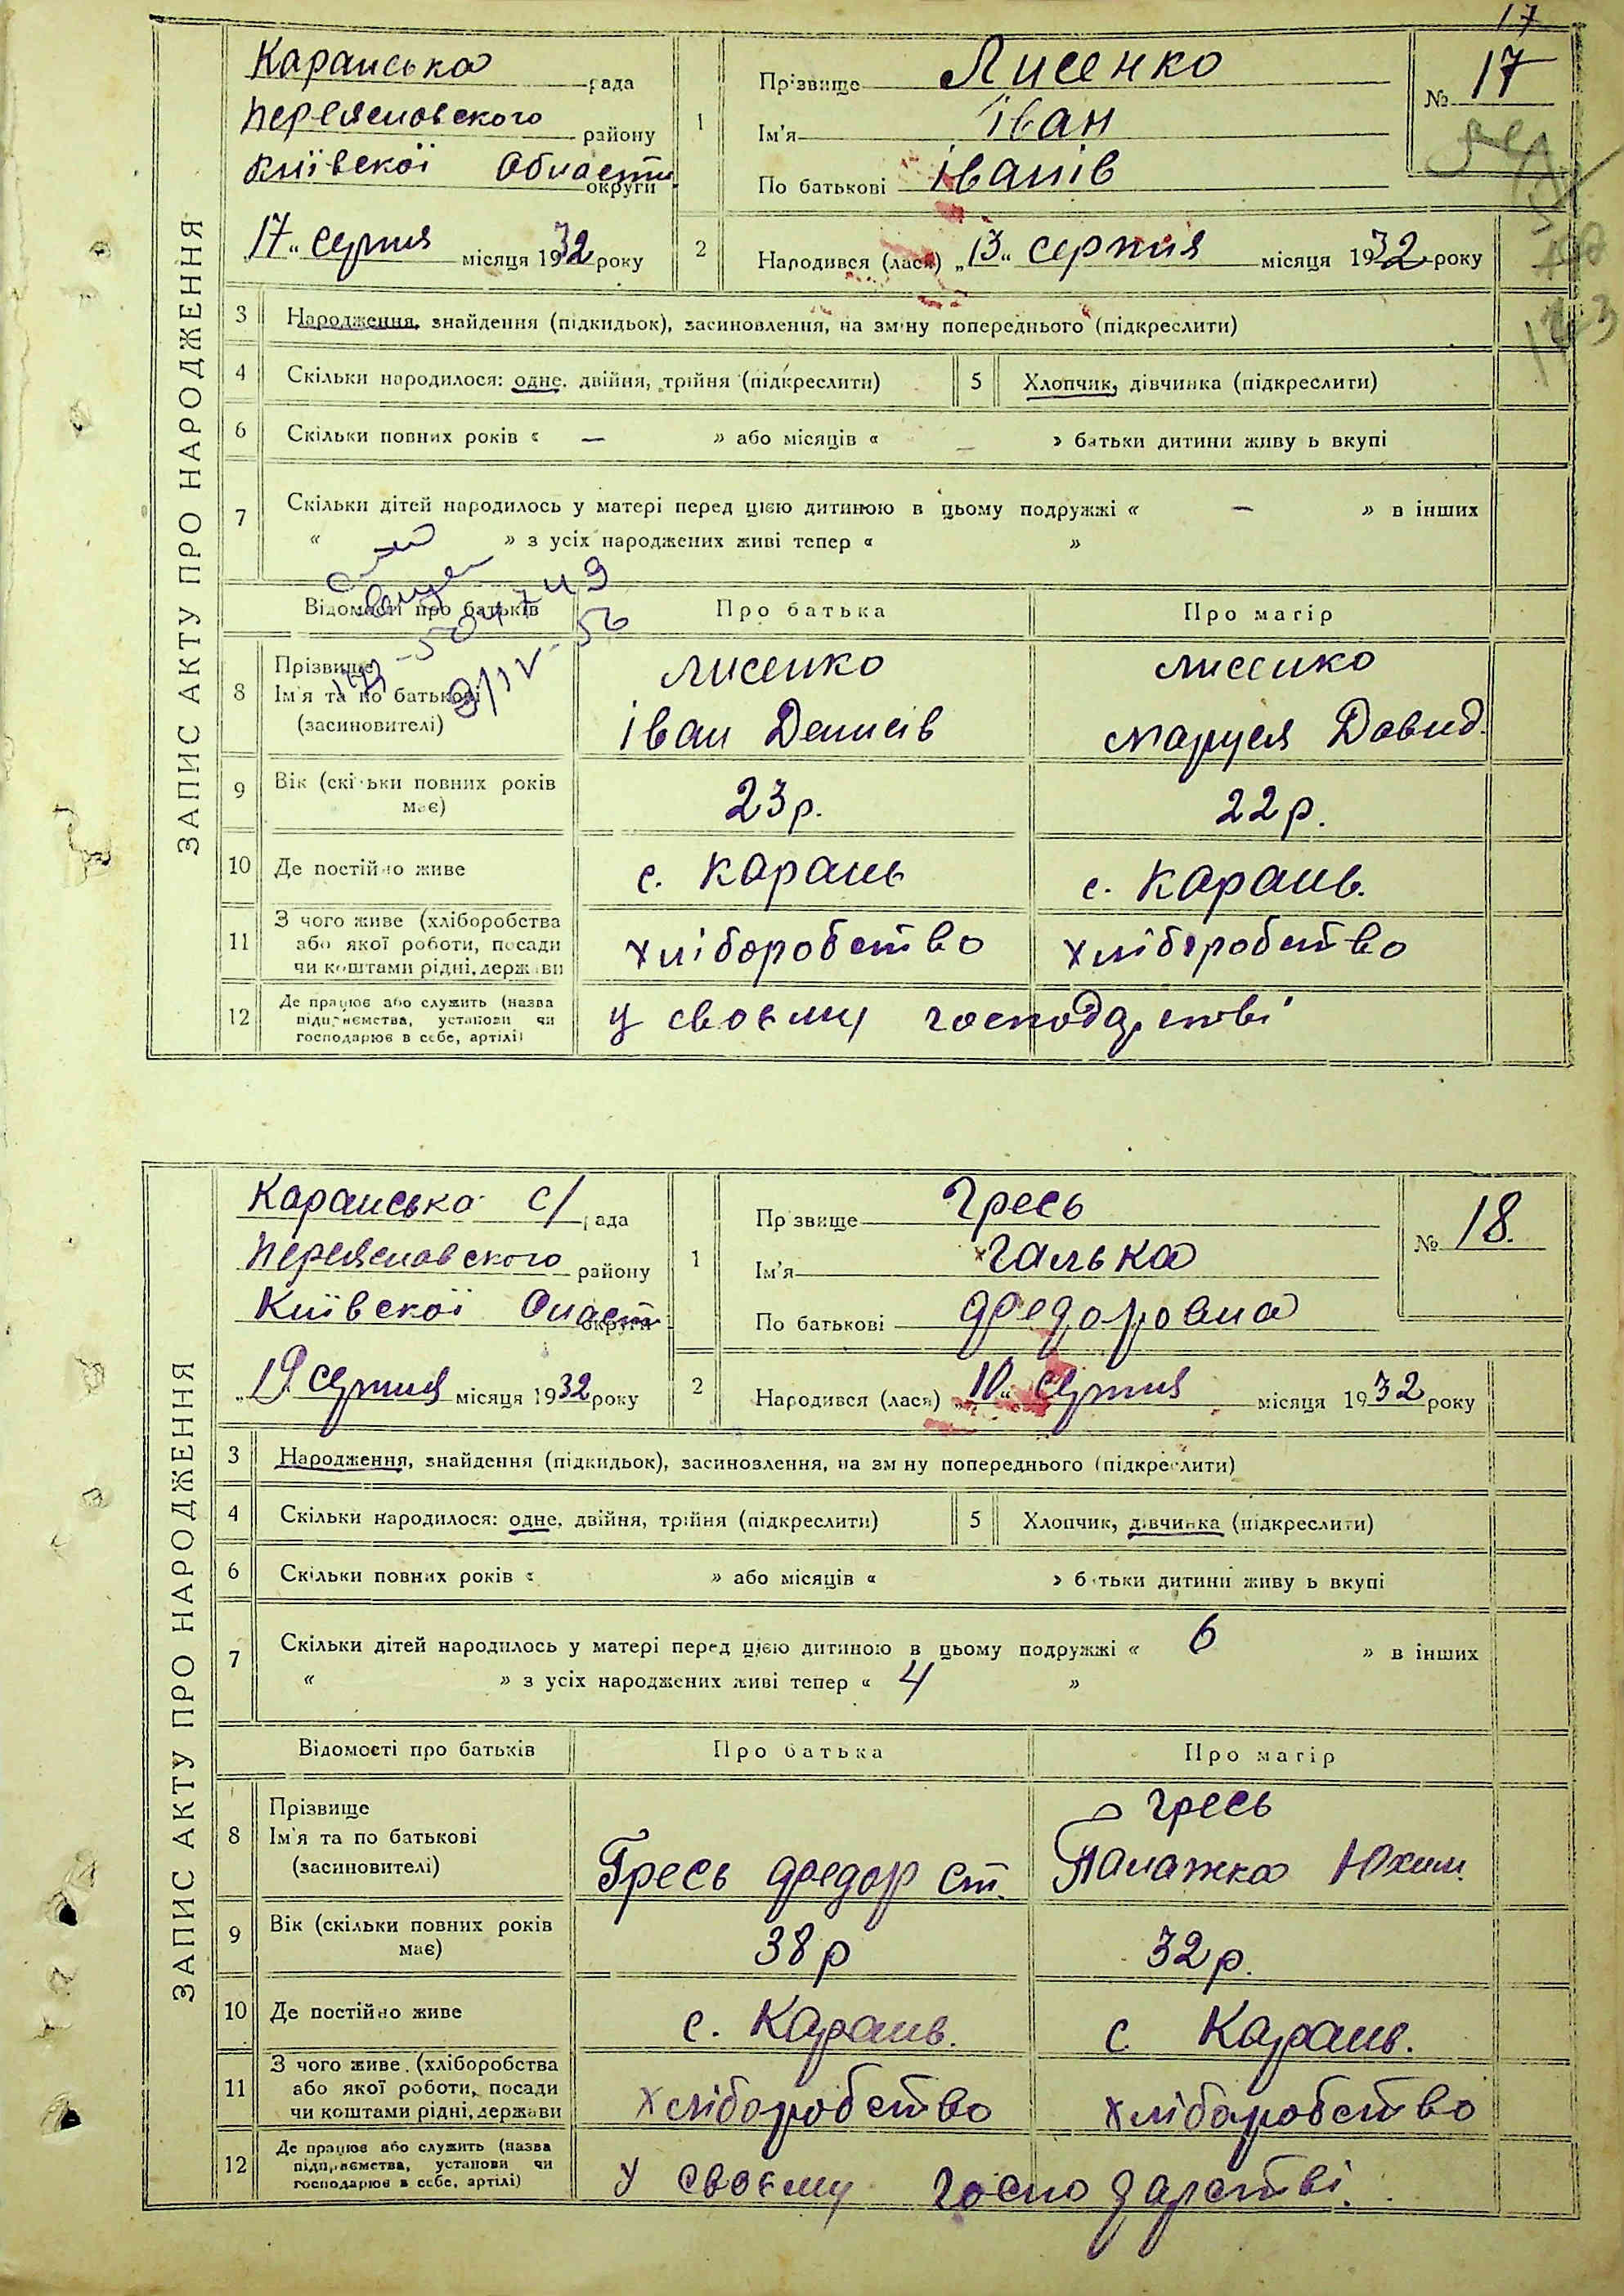 17
ЗАПИС АКТУ ПРО НАРОДЖЕННЯ
Каранська рада
Переяславского району
Київскоі Области округи
17" серпня місяця 1932 року
1 Прізвище Лисенко
Ім'я Іван
По батькові Іванів
№ 17
2 Народився (лася) „13" серпня місяця 1932 року
3 Народження, знайдення (підкидьок), засиновлення, на зміну попереднього (підкреслити)
4 Скільки народилося: одне, двійня, трійня (підкреслити) 5 Хлопчик, дівчинка (підкреслити)
6 Скільки повних років « — » або місяців « — » батьки дитини живуть вкупі
7 Скільки дітей народилось у матері перед цією дитиною в цьому подружжі « — » в інших
« » з усіх народжених живі тепер « »
Відомості про батьків Про батька Про матір
8 Прізвище
Ім'я та по батькові
(засиновителі)
Лисенко
Іван Денисів
Лисенко
Маруся Давид.
9 Вік (скільки повних років має) 23 р. 22 р.
10 Де постійно живе с. Карань с. Карань.
11 З чого живе (хліборобства
або якої роботи, посади
чи коштами рідні, держави
хліборобство хліборобство
12 Де працює або служить (назва
підприємства, установи чи
господарює в себе, артілі)
у своєму господарстві
9/IV-56
ЗАПИС АКТУ ПРО НАРОДЖЕННЯ
Каранська с/рада
Переяславского району
Київскоі Опаст округи
„19 серпня місяця 1932 року
1 Прізвище Гресь
Ім'я Галька
По батькові Федоровна
№ 18.
2 Народився (лася) „10" серпня місяця 1932 року
3 Народження, знайдення (підкидьок), засиновлення, на зміну попереднього (підкреслити)
4 Скільки народилося: одне, двійня, трійня (підкреслити) 5 Хлопчик, дівчинка (підкреслити)
6 Скільки повних років « » або місяців « » батьки дитини живуть вкупі
7 Скільки дітей народилось у матері перед цією дитиною в цьому подружжі « 6 » в інших
« » з усіх народжених живі тепер « 4 »
Відомості про батьків Про батька Про матір
8 Прізвище
Ім'я та по батькові
(засиновителі)
Гресь Федор Ст.
Гресь
Палажка Юхим.
9 Вік (скільки повних років має) 38 р 32 р.
10 Де постійно живе с. Карань. с Карань.
11 З чого живе (хліборобства
або якої роботи, посади
чи коштами рідні, держави
хліборобство хліборобство
12 Де працює або служить (назва
підприємства, установи чи
господарює в себе, артілі)
У своєму господарстві.